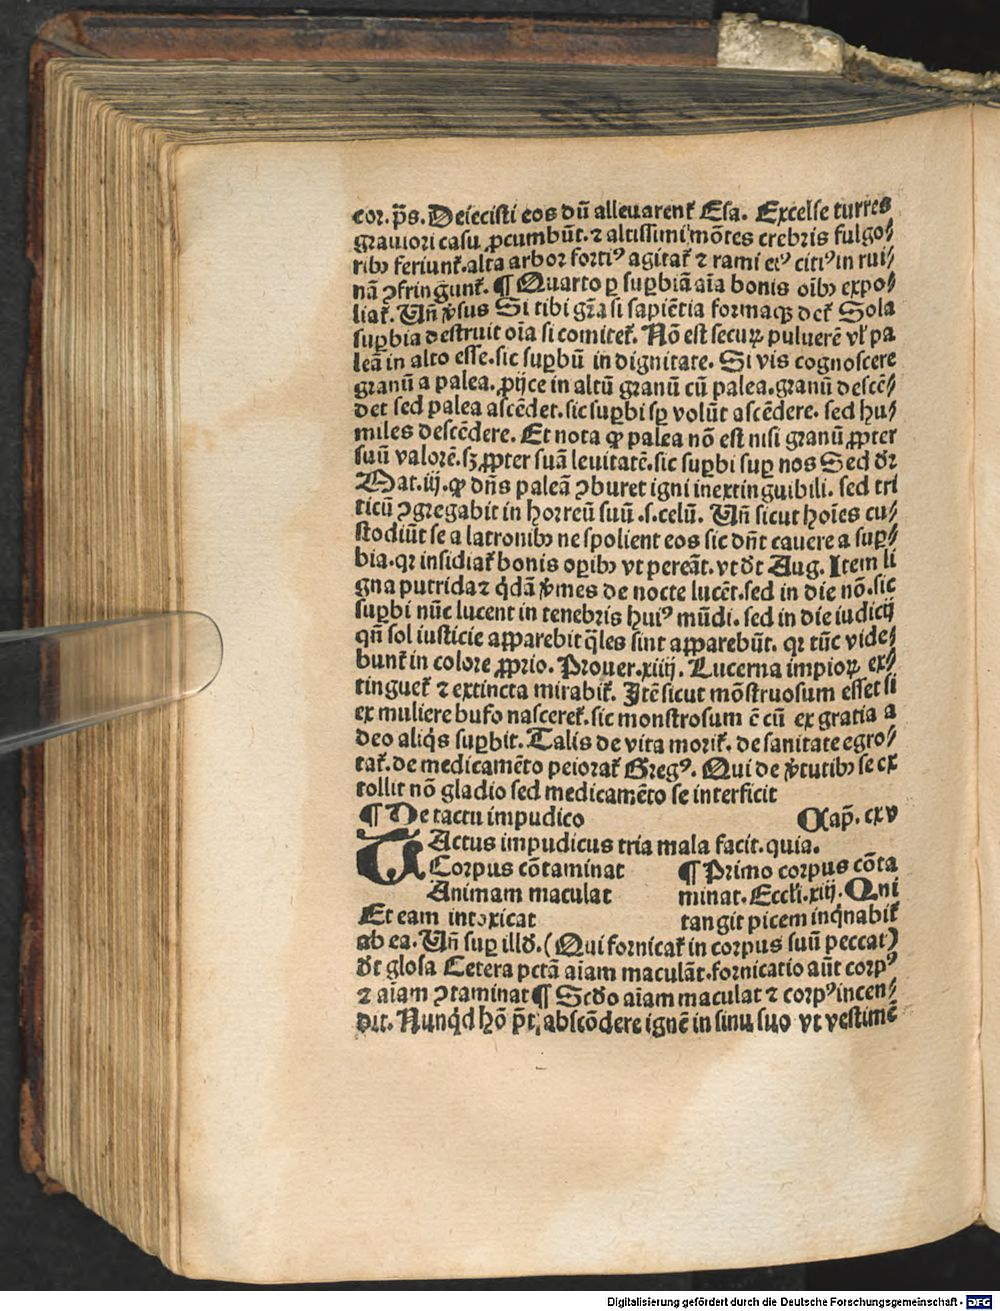 eor. p̄s. Deiecisti eos dū alleuarent᷑ Esa. Excelse turres
grauiori casu ꝓcumbūt. ⁊ altissimi mōtes crebris fulgo⸗
ribꝫ feriunt᷑. alta arbor fortiꝰ agitat᷑ ⁊ rami eiꝰ citiꝰ in rui⸗
nā ꝯfringunt᷑. ¶ Quarto ꝑ suꝑbiā aīa bonis oībꝫ expo⸗
liat᷑. Uñ v̄sus Si tibi gr̄a si sapiētia formaqꝫ det᷑ Sola
suꝑbia destruit oīa si comitet᷑. Nō est secuꝝ puluerē vl̓ pa
leā in alto esse. sic suꝑbū in dignitate. Si vis cognoscere
granū a palea. ꝓijce in altū granū cū palea. granū descē⸗
det sed palea ascēdet. sic suꝑbi sꝑ volūt ascēdere. sed hu⸗
miles descēdere. Et nota ꝙ palea nō est nisi granū ꝓpter
suū valorē. sꝫ ꝓpter suā leuitatē. sic suꝑbi suꝑ nos Sed d̄r
Mat. iij. ꝙ dn̄s paleā ꝯburet igni inextinguibili. sed tri
ticū ꝯgregabit in horreū suū .s. celū. Uñ sicut hoīes cu⸗
stodiūt se a latronibꝫ ne spolient eos sic dn̄t cauere a suꝑ⸗
bia. qꝛ insidiat᷑ bonis oꝑibꝫ vt pereāt. vt dt̄ Aug. Item li
gna putrida ⁊ q̇dā v̄mes de nocte lucēt. sed in die nō. sic
suꝑbi nūc lucent in tenebris huiꝰ mūdi. sed in die iudicij
qn̄ sol iusticie apparebit q̄les sint apparebūt. qꝛ tūc vide⸗
bunt᷑ in colore ꝓprio. Prouer. xiiij. Lucerna impioꝝ ex⸗
tinguet᷑ ⁊ extincta mirabit᷑. Itē sicut mōstruosum esset si
ex muliere bufo nasceret᷑. sic monstrosum ē cū ex gratia a
deo aliq̇s suꝑbit. Talis de vita morit᷑. de sanitate egro⸗
tat᷑. de medicamēto peiorat᷑ Gregꝰ. Qui de v̄tutibꝫ se ex
tollit nō gladio sed medicamēto se interficit
¶ De tactu impudico Cap̄. cxv
TActus impudicus tria mala facit. quia.
Corpus cōtaminat ¶ Primo corpus cōta
Animam maculat minat. Eccłi. xiij. Qui
Et eam intoxicat tangit picem inq̇nabit᷑
ab ea. Uñ suꝑ illd̄. (Qui fornicat᷑ in corpus suū peccat)
dt̄ glosa Cetera pctā aīam maculāt. fornicatio aūt corpꝰ
⁊ aīam ꝯtaminat ¶ Scd̄o aīam maculat ⁊ corpꝰ incen⸗
dit. Nunq̇d hō pt̄ abscōdere ignē in sinu suo vt vestimē
Digitalisierung gefördert durch die Deutsche Forschungsgemeinschaft - DFG